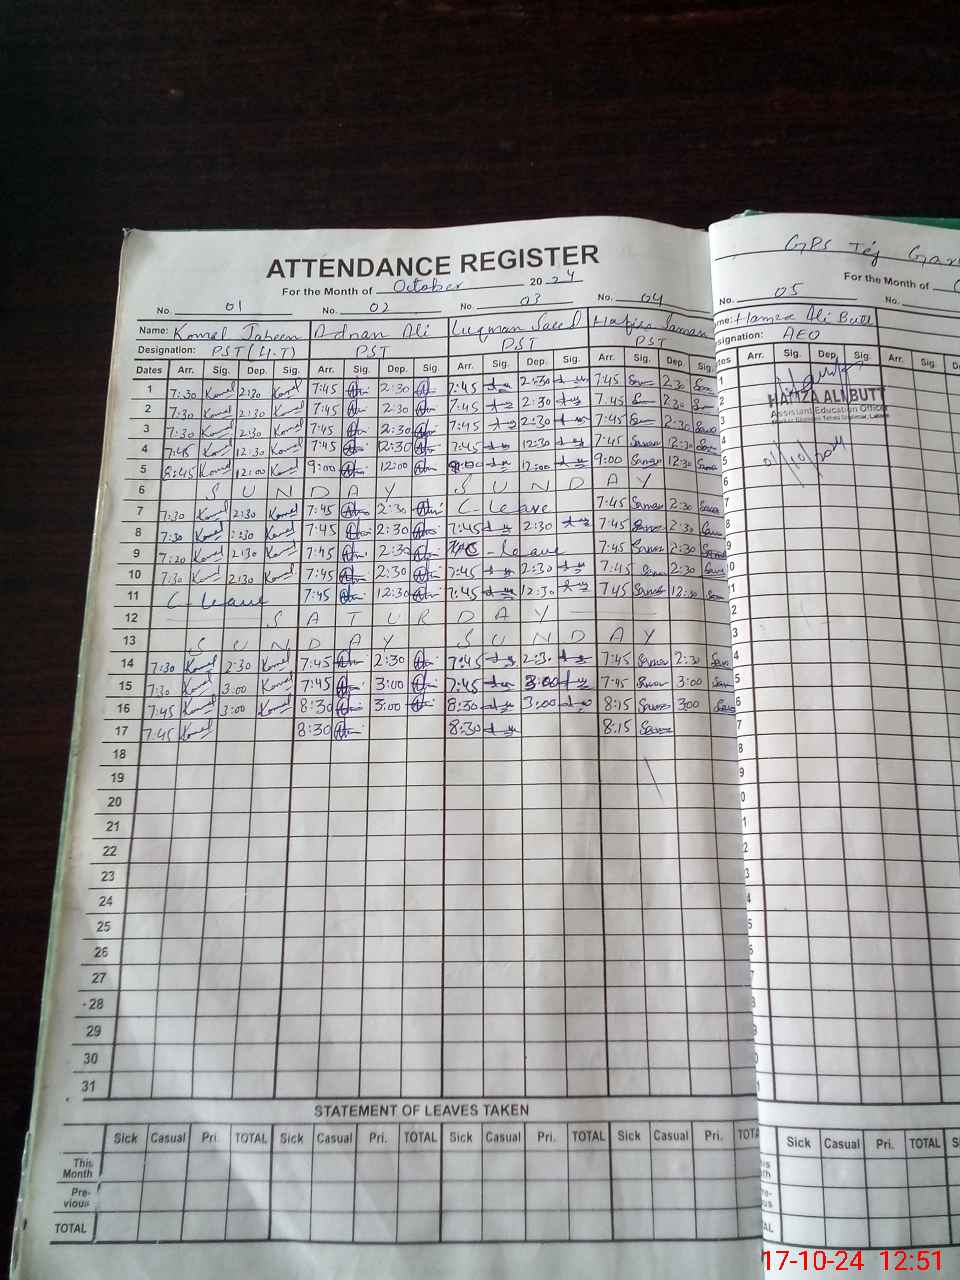 ATTENDANCE REGISTER
GPS Tej Gar
For the Month of October 2024
For the Month of
No. 01 No. 02 No. 03 No. 04 No. 05 No.
Name: Komal Jabeen Adnan Ali Luqman Saeed Hafiza Saman me: Hamza Ali Butt
Designation: PST (H.T) PST PST PST signation: AEO
Dates Arr. Sig. Dep. Sig. Arr. Sig. Dep. Sig. Arr. Sig. Dep. Sig. Arr. Sig. Dep. Sig. ates Arr. Sig. Dep. Sig. Arr. Sig. Dep.
1 7:30 Komal 2:30 Komal 7:45 2:30 7:45 2:30 7:45 Saman 2:30 1
2 7:30 Komal 2:30 Komal 7:45 2:30 7:45 2:30 7:45 2:30 2
HAMZA ALI BUTT
Assistant Education Officer
3 7:30 Komal 2:30 Komal 7:45 2:30 7:45 2:30 7:45 2:30 3
4 7:45 Komal 12:30 Komal 7:45 12:30 7:45 12:30 7:45 Saman 12:30 4
5 8:45 Komal 12:00 Komal 9:00 12:00 9:00 12:00 9:00 Saman 12:30 5
6 S U N D A Y S U N D A Y 6
7 7:30 Komal 2:30 Komal 7:45 2:30 C-Leave 7:45 Saman 2:30 7
8 7:30 Komal 2:30 Komal 7:45 2:30 7:45 2:30 7:45 Saman 2:30 8
9 7:20 Komal 2:30 Komal 7:45 2:30 C-leave 7:45 Saman 2:30 9
10 7:30 Komal 2:30 Komal 7:45 2:30 7:45 2:30 7:45 Saman 2:30 0
11 C-Leave 7:45 12:30 7:45 12:30 7:45 Saman 12:30 1
12 S A T U R D A Y 2
13 S U N D A Y S U N D A Y 3
14 7:30 Komal 2:30 Komal 7:45 2:30 7:45 2:30 7:45 Saman 2:30 4
15 7:30 Komal 3:00 Komal 7:45 3:00 7:45 3:00 7:45 Saman 3:00 5
16 7:45 Komal 3:00 Komal 8:30 3:00 8:30 3:00 8:15 Saman 3:00 6
17 7:45 Komal 8:30 8:30 8:15 Saman 7
18 8
19 9
20 0
21 1
22 2
23 3
24 4
25 5
26 5
27 7
28
29
30
31
STATEMENT OF LEAVES TAKEN
Sick Casual Pri. TOTAL Sick Casual Pri. TOTAL Sick Casual Pri. TOTAL Sick Casual Pri. TOTA Sick Casual Pri. TOTAL S
This Month
Pre-vious
TOTAL
17-10-24 12:51